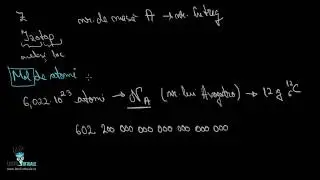 Z nr. de masă A → nr. întreg
Izotop
același loc
Mol de atomi :
6,022 10²³ atomi → N_A (nr. lui Avogadro) → 12 g ¹²₆C
602 200 000 000 000 000 000 000